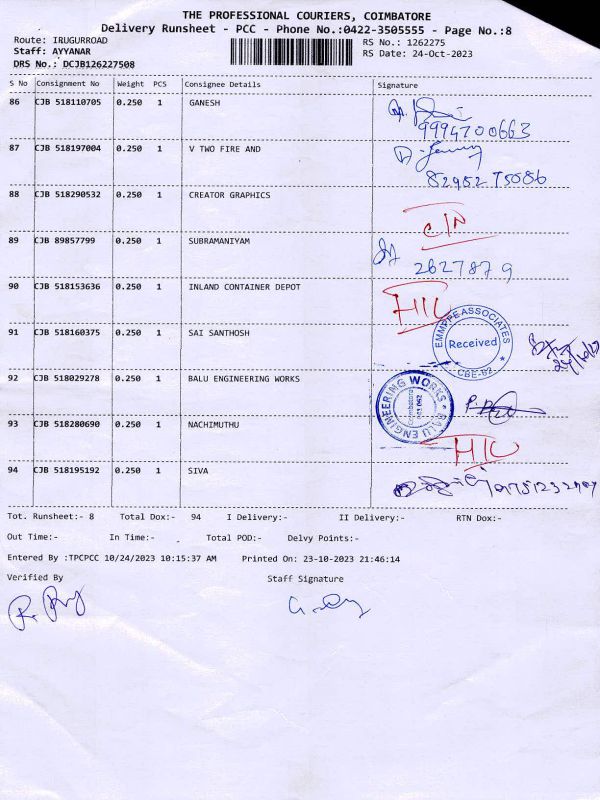 THE PROFESSIONAL COURIERS, COIMBATORE
Delivery Runsheet - PCC - Phone No.:0422-3505555 - Page No.:8
Route: IRUGURROAD
RS No.: 1262275
Staff: AYYANAR
RS Date: 24-Oct-2023
DRS No.: DCJB126227508
S No Consignment No Weight PCS Consignee Details Signature
86 CJB 518110705 0.250 1 GANESH
9994700663
87 CJB 518197004 0.250 1 V TWO FIRE AND
82952 75086
88 CJB 518290532 0.250 1 CREATOR GRAPHICS
89 CJB 89857799 0.250 1 SUBRAMANIYAM
2627879
90 CJB 518153636 0.250 1 INLAND CONTAINER DEPOT
91 CJB 518160375 0.250 1 SAI SANTHOSH
EMMPPEASSOCIATES
Received
CBE-62
92 CJB 518029278 0.250 1 BALU ENGINEERING WORKS
BALU ENGINEERING WORKS
Coimbatore
641 062
93 CJB 518280690 0.250 1 NACHIMUTHU
94 CJB 518195192 0.250 1 SIVA
Tot. Runsheet:- 8 Total Dox:- 94 I Delivery:- II Delivery:- RTN Dox:-
Out Time:- In Time:- Total POD:- Delvy Points:-
Entered By :TPCPCC 10/24/2023 10:15:37 AM Printed On: 23-10-2023 21:46:14
Verified By Staff Signature